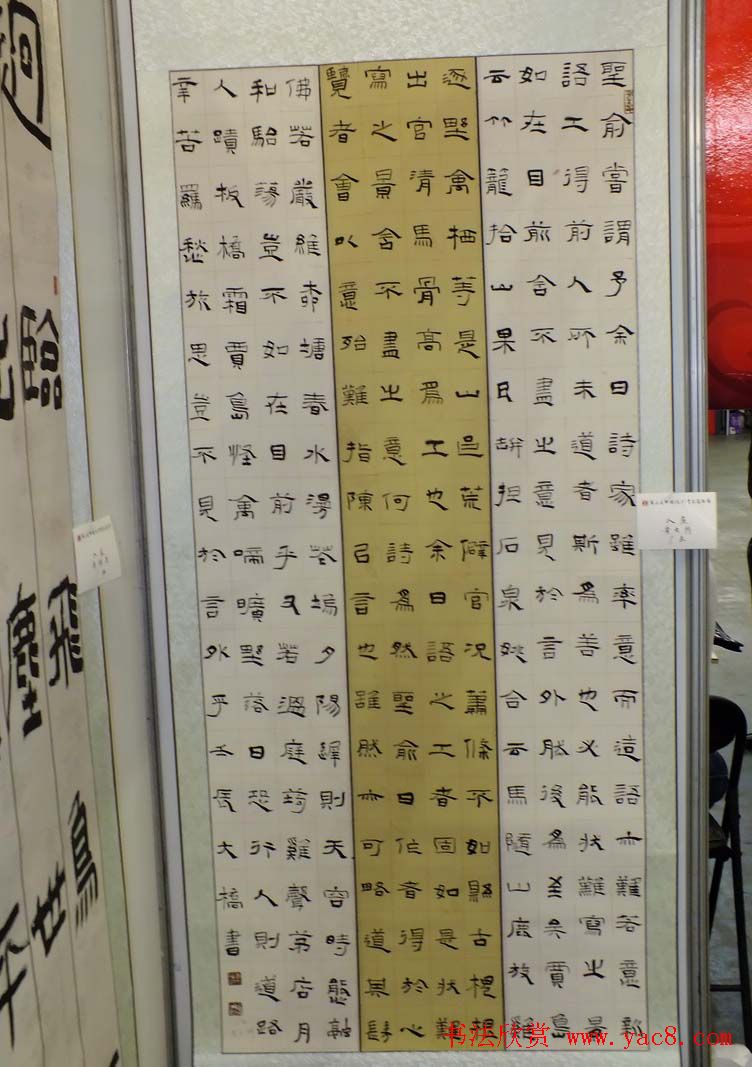 聖俞嘗謂予余曰詩家雖率意而造語亦難若意新
語工得前人所未道者斯為善也必能狀難寫之景
如在目前含不盡之意見於言外然後為至矣賈島
云竹籠拾山果瓦缾担石泉姚合云馬隨山鹿放雞
逐野禽栖等是山邑荒僻官況蕭條不如縣古槐根
出官清馬骨高為工也余曰語之工者固如是狀難
寫之景含不盡之意何詩為然聖俞曰作者得於心
覽者會以意殆難指陳㠯言也雖然亦可略道其髣
佛若嚴維柳塘春水漫花塢夕陽遲則天容時態融
和駘蕩豈不如在目前乎又若溫庭筠雞聲茅店月
人蹟板橋霜賈島怪禽啼曠野落日恐行人則道路
辛苦羈愁旅思豈不見於言外乎壬辰大橋書
臨
飛鳥
塵世
书法欣赏 www.yac8.com